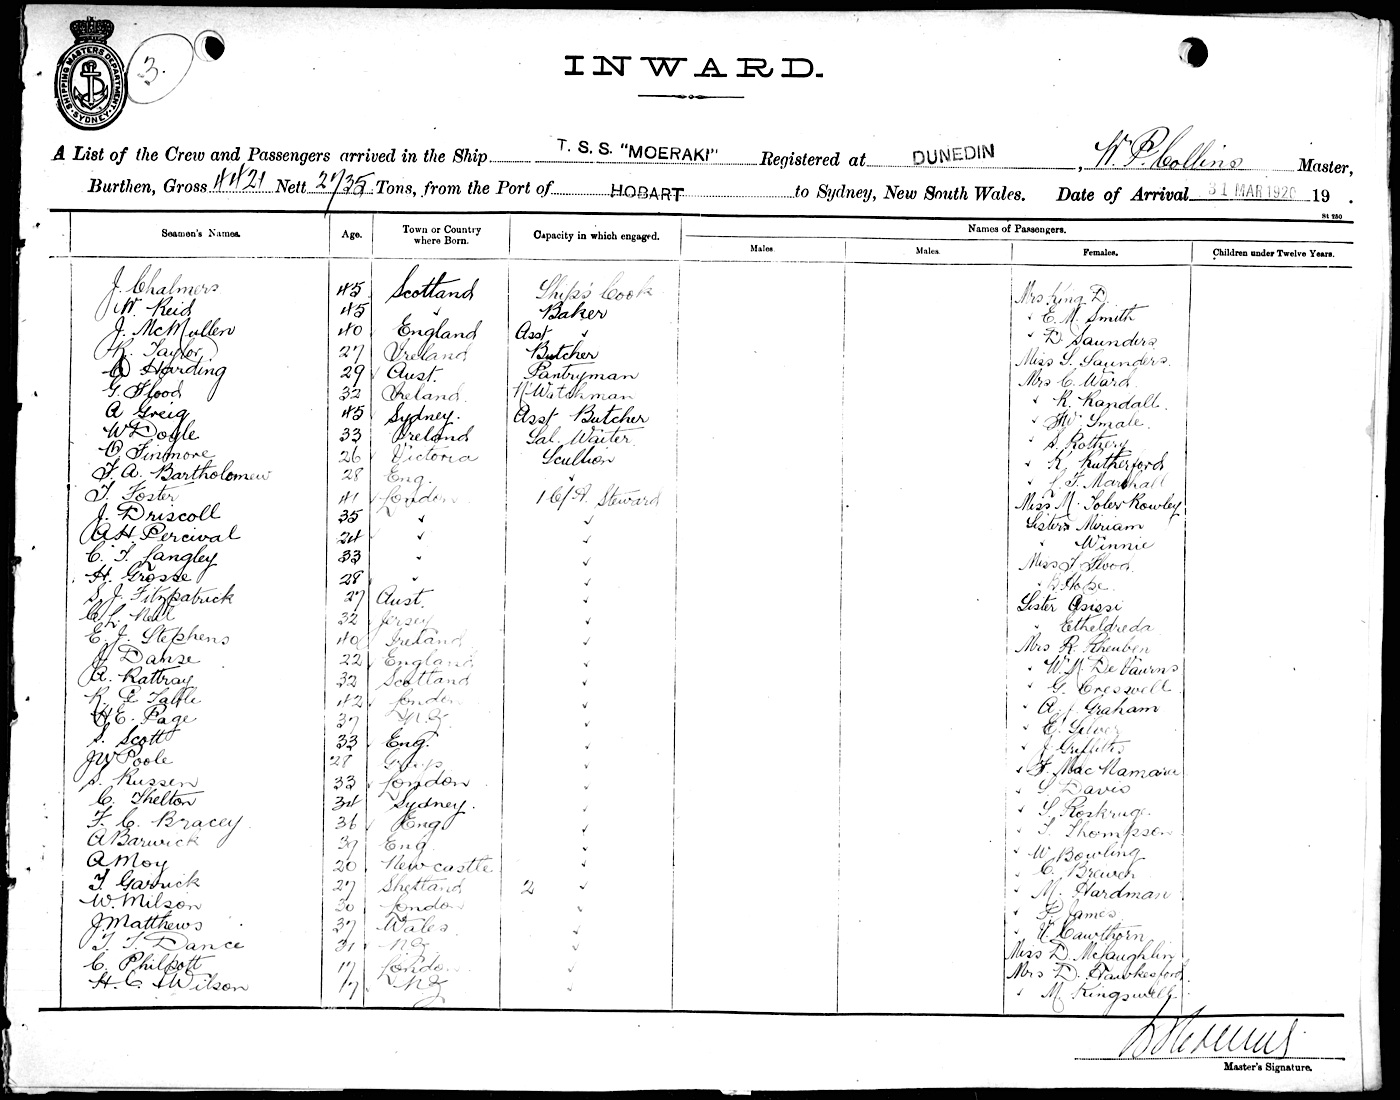 SHIPPING MASTERS DEPARTMENT
SYDNEY
3.
INWARD.
A List of the Crew and Passengers arrived in the Ship T. S. S. "MOERAKI" Registered at DUNEDIN, W. P. Collins Master,
Burthen, Gross 4421 Nett 2735 Tons, from the Port of HOBART to Sydney, New South Wales. Date of Arrival 31 MAR 1920 19 .
St 250
Seamen's Names. Age. Town or Country where Born. Capacity in which engaged. Names of Passengers.
Males. Males. Females. Children under Twelve Years.
J. Chalmers 45 Scotland Ship's Cook Mrs King D.
W. Reid 45 " Baker " E. M. Smith
J. McMullen 40 England Asst " " D Saunders
R. Taylor 27 Ireland Butcher Miss S. Saunders.
Harding 29 Aust. Pantryman Mrs C. Ward
G. Flood 32 Ireland. N' Watchman " R. Randall.
A Greig 45 Sydney. Asst Butcher " W. Smale.
W Doyle 33 Ireland Sal. Waiter. " S. Rothery
Finmore 26 Victoria Scullion " R. Rutherford
F. A. Bartholomew 28 Eng. " " F. Marshall
T. Foster 41 London 1 Cl. A. Steward Miss M. Soler Rowley
J. Driscoll 35 " " Sisters Miriam
A H. Percival 24 " " " Winnie
C. T. Langley 33 " " Miss Flood
H. Grosse 28 " " " Hope.
S. J. Fitzpatrick 27 Aust. " Sister Assisi
C. L. Neil 32 Jersey " " Etheldreda
E. J. Stephens 40 Ireland " Mrs R.
J. Danse 22 England " "
A. Rattray 32 Scotland " " G. Cresswell
R. E 42 London " " A. J. Graham
H E. Page 37 N.Z. " " E. Silver
S. Scott 33 Eng. " " J. Griffiths
J W Poole 28 " " F. MacNamara
S. Russen 33 London " " S. Davis
C. Shelton 34 Sydney. " " S. Roskruge.
F. C. Bracey 36 Eng " " S. Thompson
A Barwick 39 Eng. " " W Bowling
A Moy 20 Newcastle " " C. Brewer
T. Garrick 27 Shetland 2 " " M. Hardman
W. Milson 30 London " " P. James
J Matthews 37 Wales. " " Cawthorn
T. T. Dance 31 N Z " Miss D. McLaughlin
C. Philpott 17 London " Mrs D. Hawkesford
H. C. Wilson 17 N Z " " M Kingswell
Master's Signature.